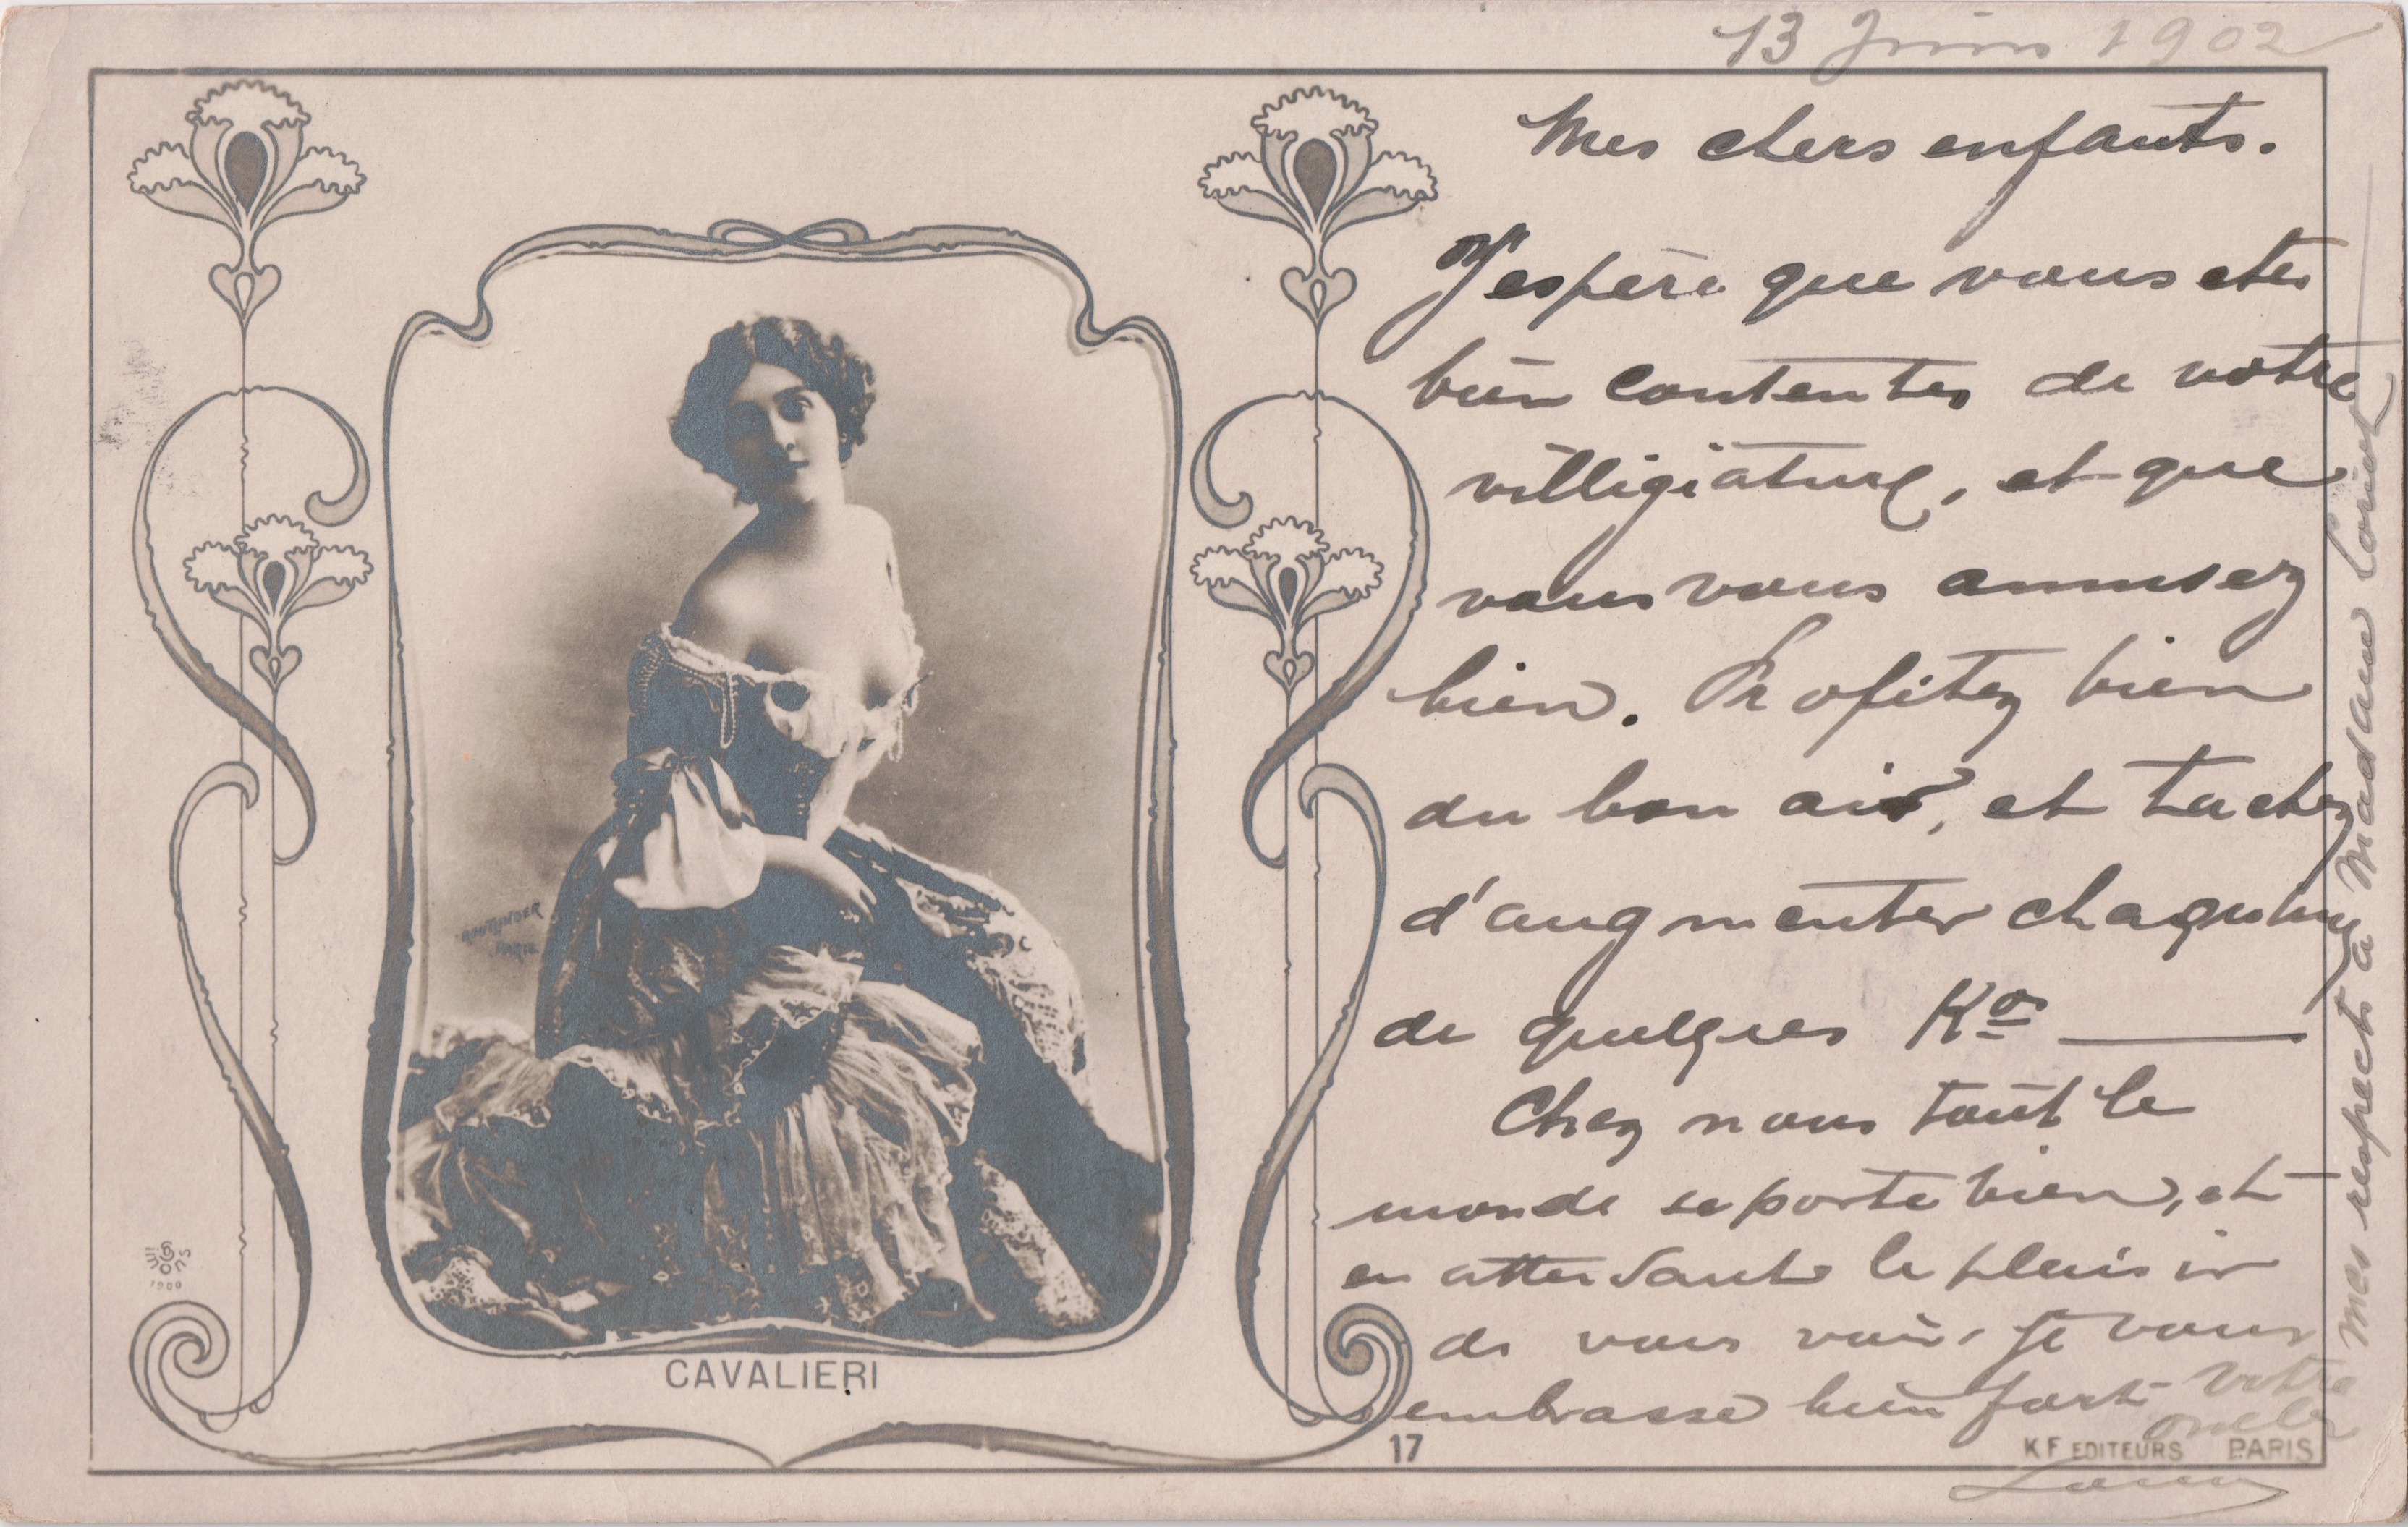 13 Juin 1902
Mes chers enfants.
J'espère que vous etes
bien contentes de votre
villigiature, et que
vous vous amusez
bien. Profitez bien
du bon air, et tachez
d'augmenter chaqu'une
de quelques Kos
Chez nous tout le
monde se porte bien, et
en attendant le plaisir
de vous voir, je vous
embrasse bien fort votre
oncle
Mes respects à Madame Loriot
REUTLINGER
PARIS.
SIP
1900
CAVALIERI
17
KF EDITEURS PARIS